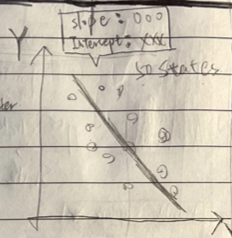 slope : 000
Intercept : XXX
Y
50 States
ter
X